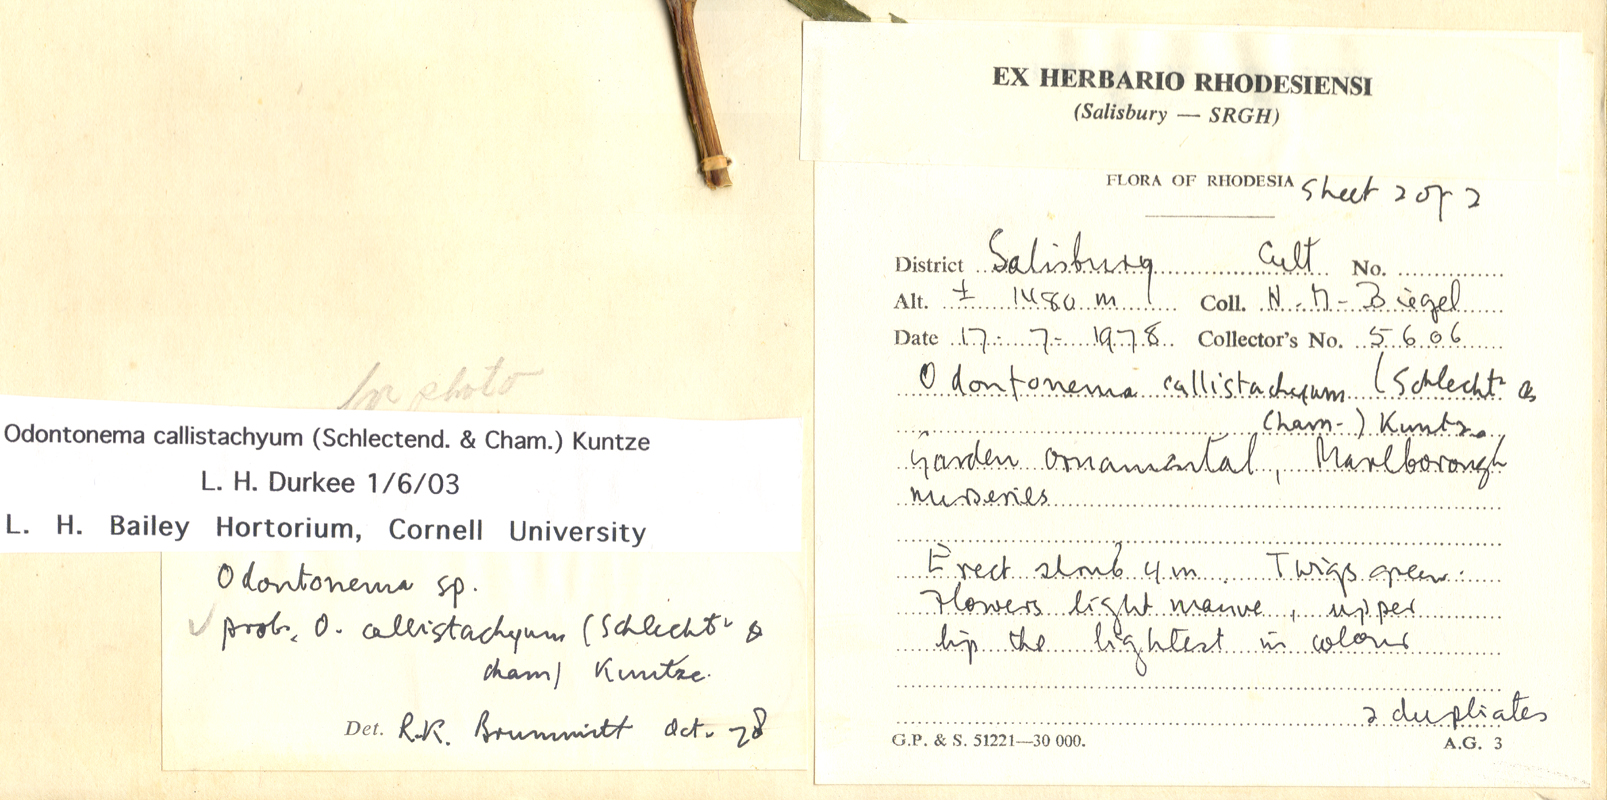 for photo
Odontonema callistachyum (Schlectend. & Cham.) Kuntze
L. H. Durkee 1/6/03
L. H. Bailey Hortorium, Cornell University
Odontonema sp.
prob. O. callistachyum (Schlechtᵈ &
Cham) Kuntze.
Det. R.K. Brummitt Oct. 78
EX HERBARIO RHODESIENSI
(Salisbury — SRGH)
FLORA OF RHODESIA Sheet 2 of 2
District Salisbury Cult No.
Alt. ± 1480 m Coll. H. M. Biegel
Date 17. 7. 1978 Collector's No. 5606
Odontonema callistachyum (Schlechtᵈ &
Cham.) Kuntze
Garden ornamental, Marlborough
nurseries
Erect shrub 4 m. Twigs green.
Flowers light mauve, upper
lip the lightest in colour
2 dupliates
G.P. & S. 51221—30 000. A.G. 3